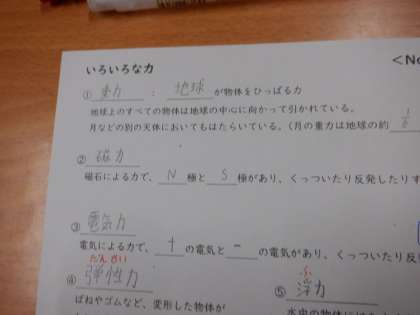 いろいろな力
<No
① 重力 : 地球 が物体をひっぱる力
地球上のすべての物体は地球の中心に向かって引かれている。
月などの別の天体においてもはたらいている。(月の重力は地球の約 1/6
② 磁力
磁石による力で、 N 極と S 極があり、くっついたり反発したりす
③ 電気力
電気による力で、 + の電気と − の電気があり、くっついたり反
だんせい
④ 弾性力
ばねやゴムなど、変形した物体が
ふ
⑤ 浮力
水中の物体に